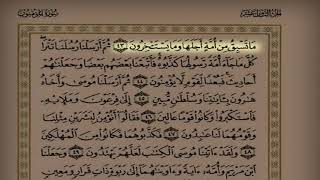 سُورَةُ المُؤْمِنُونَ الجُزْءُ الثَّامِنَ عَشَرَ
مَا تَسْبِقُ مِنْ أُمَّةٍ أَجَلَهَا وَمَا يَسْتَـْٔخِرُونَ ٤٣ ثُمَّ أَرْسَلْنَا رُسُلَنَا تَتْرَا
كُلَّ مَا جَآءَ أُمَّةً رَّسُولُهَا كَذَّبُوهُ فَأَتْبَعْنَا بَعْضَهُم بَعْضًا وَجَعَلْنَٰهُمْ
أَحَادِيثَ فَبُعْدًا لِّقَوْمٍ لَّا يُؤْمِنُونَ ٤٤ ثُمَّ أَرْسَلْنَا مُوسَىٰ وَأَخَاهُ
هَٰرُونَ بِـَٔايَٰتِنَا وَسُلْطَٰنٍ مُّبِينٍ ٤٥ إِلَىٰ فِرْعَوْنَ وَمَلَإِي۟هِۦ
فَٱسْتَكْبَرُوا۟ وَكَانُوا۟ قَوْمًا عَالِينَ ٤٦ فَقَالُوٓا۟ أَنُؤْمِنُ لِبَشَرَيْنِ مِثْلِنَا
وَقَوْمُهُمَا لَنَا عَٰبِدُونَ ٤٧ فَكَذَّبُوهُمَا فَكَانُوا۟ مِنَ ٱلْمُهْلَكِينَ
٤٨ وَلَقَدْ ءَاتَيْنَا مُوسَى ٱلْكِتَٰبَ لَعَلَّهُمْ يَهْتَدُونَ ٤٩ وَجَعَلْنَا
ٱبْنَ مَرْيَمَ وَأُمَّهُۥٓ ءَايَةً وَءَاوَيْنَٰهُمَآ إِلَىٰ رَبْوَةٍ ذَاتِ قَرَارٍ وَمَعِينٍ